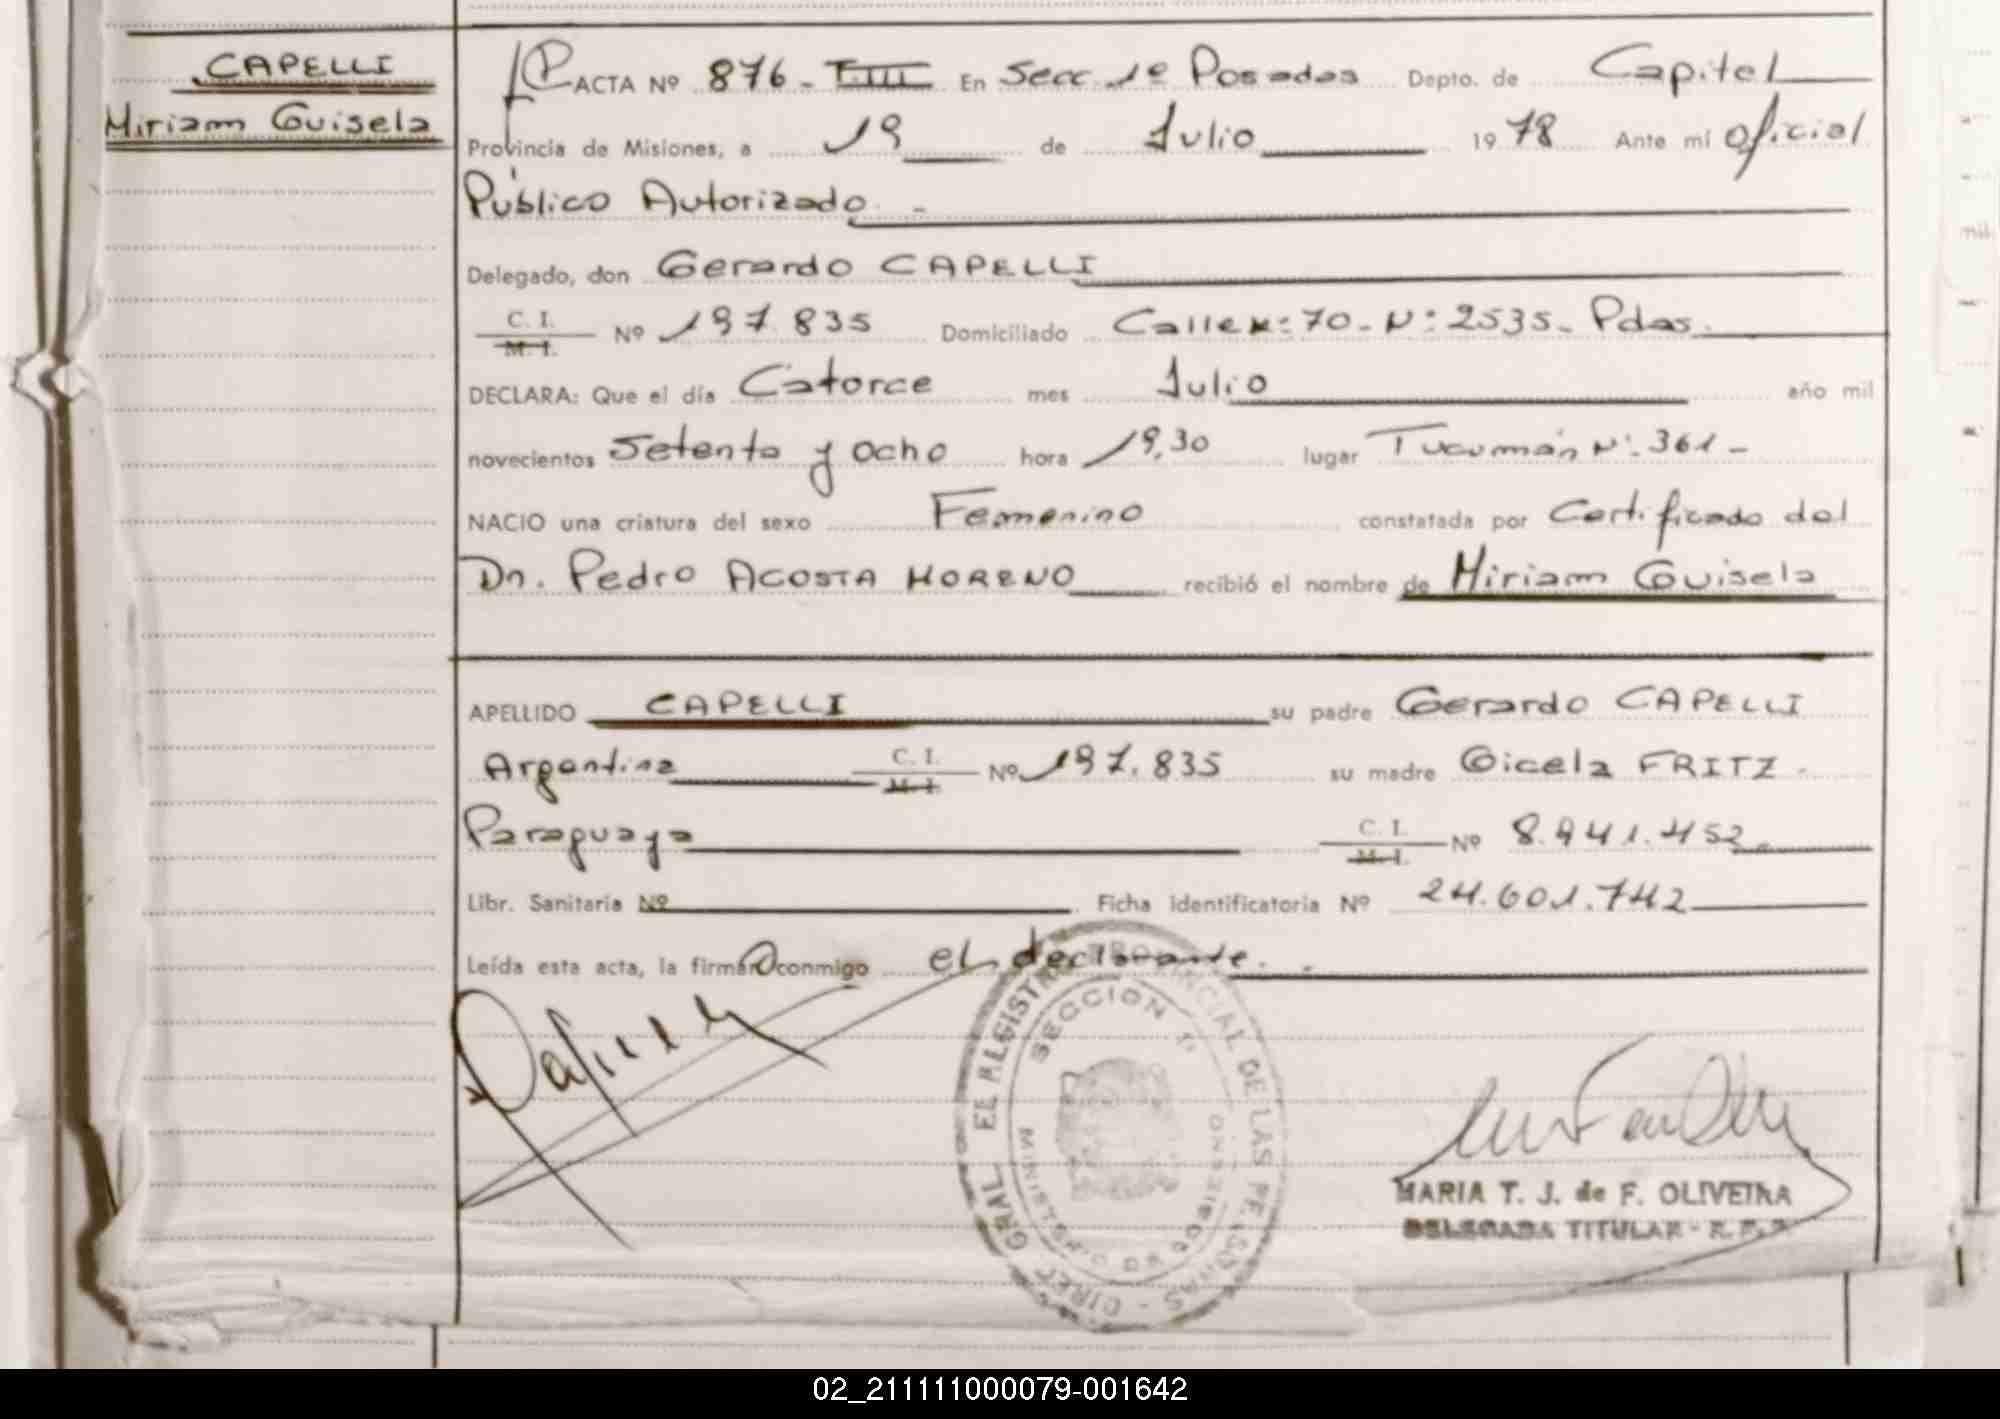 CAPELLI
Miriam Guisela
ACTA Nº 876 - T. III En Secc. 1º Posadas Depto. de Capital
Provincia de Misiones, a 19 de Julio 1978 Ante mí Oficial
Público Autorizado. -
Delegado, don Gerardo CAPELLI
C. I. M. I. Nº 197.835 Domiciliado Calle Nº: 70 - Nº: 2535 - Pdas.
DECLARA: Que el día Catorce mes Julio año mil
novecientos Setenta y Ocho hora 19,30 lugar Tucumán Nº: 361 -
NACIO una criatura del sexo Femenino constatada por Certificado del
Dn. Pedro ACOSTA MORENO recibió el nombre de Miriam Guisela
APELLIDO CAPELLI su padre Gerardo CAPELLI
Argentina C. I. M. I. Nº 197.835 su madre Gicela FRITZ -
Paraguaya C. I. M. I. Nº 8.941.452.
Libr. Sanitaria Nº Ficha identificatoria Nº 24.601.742
Leída esta acta, la firma conmigo el declarante. -
DIREC. GRAL. EL REGISTRO PROVINCIAL DE LAS PERSONAS -
SECCION 1ª
MINISTERIO DE GOBIERNO
MARIA T. J. de F. OLIVEIRA
DELEGADA TITULAR - R. P. P.
02_211111000079-001642